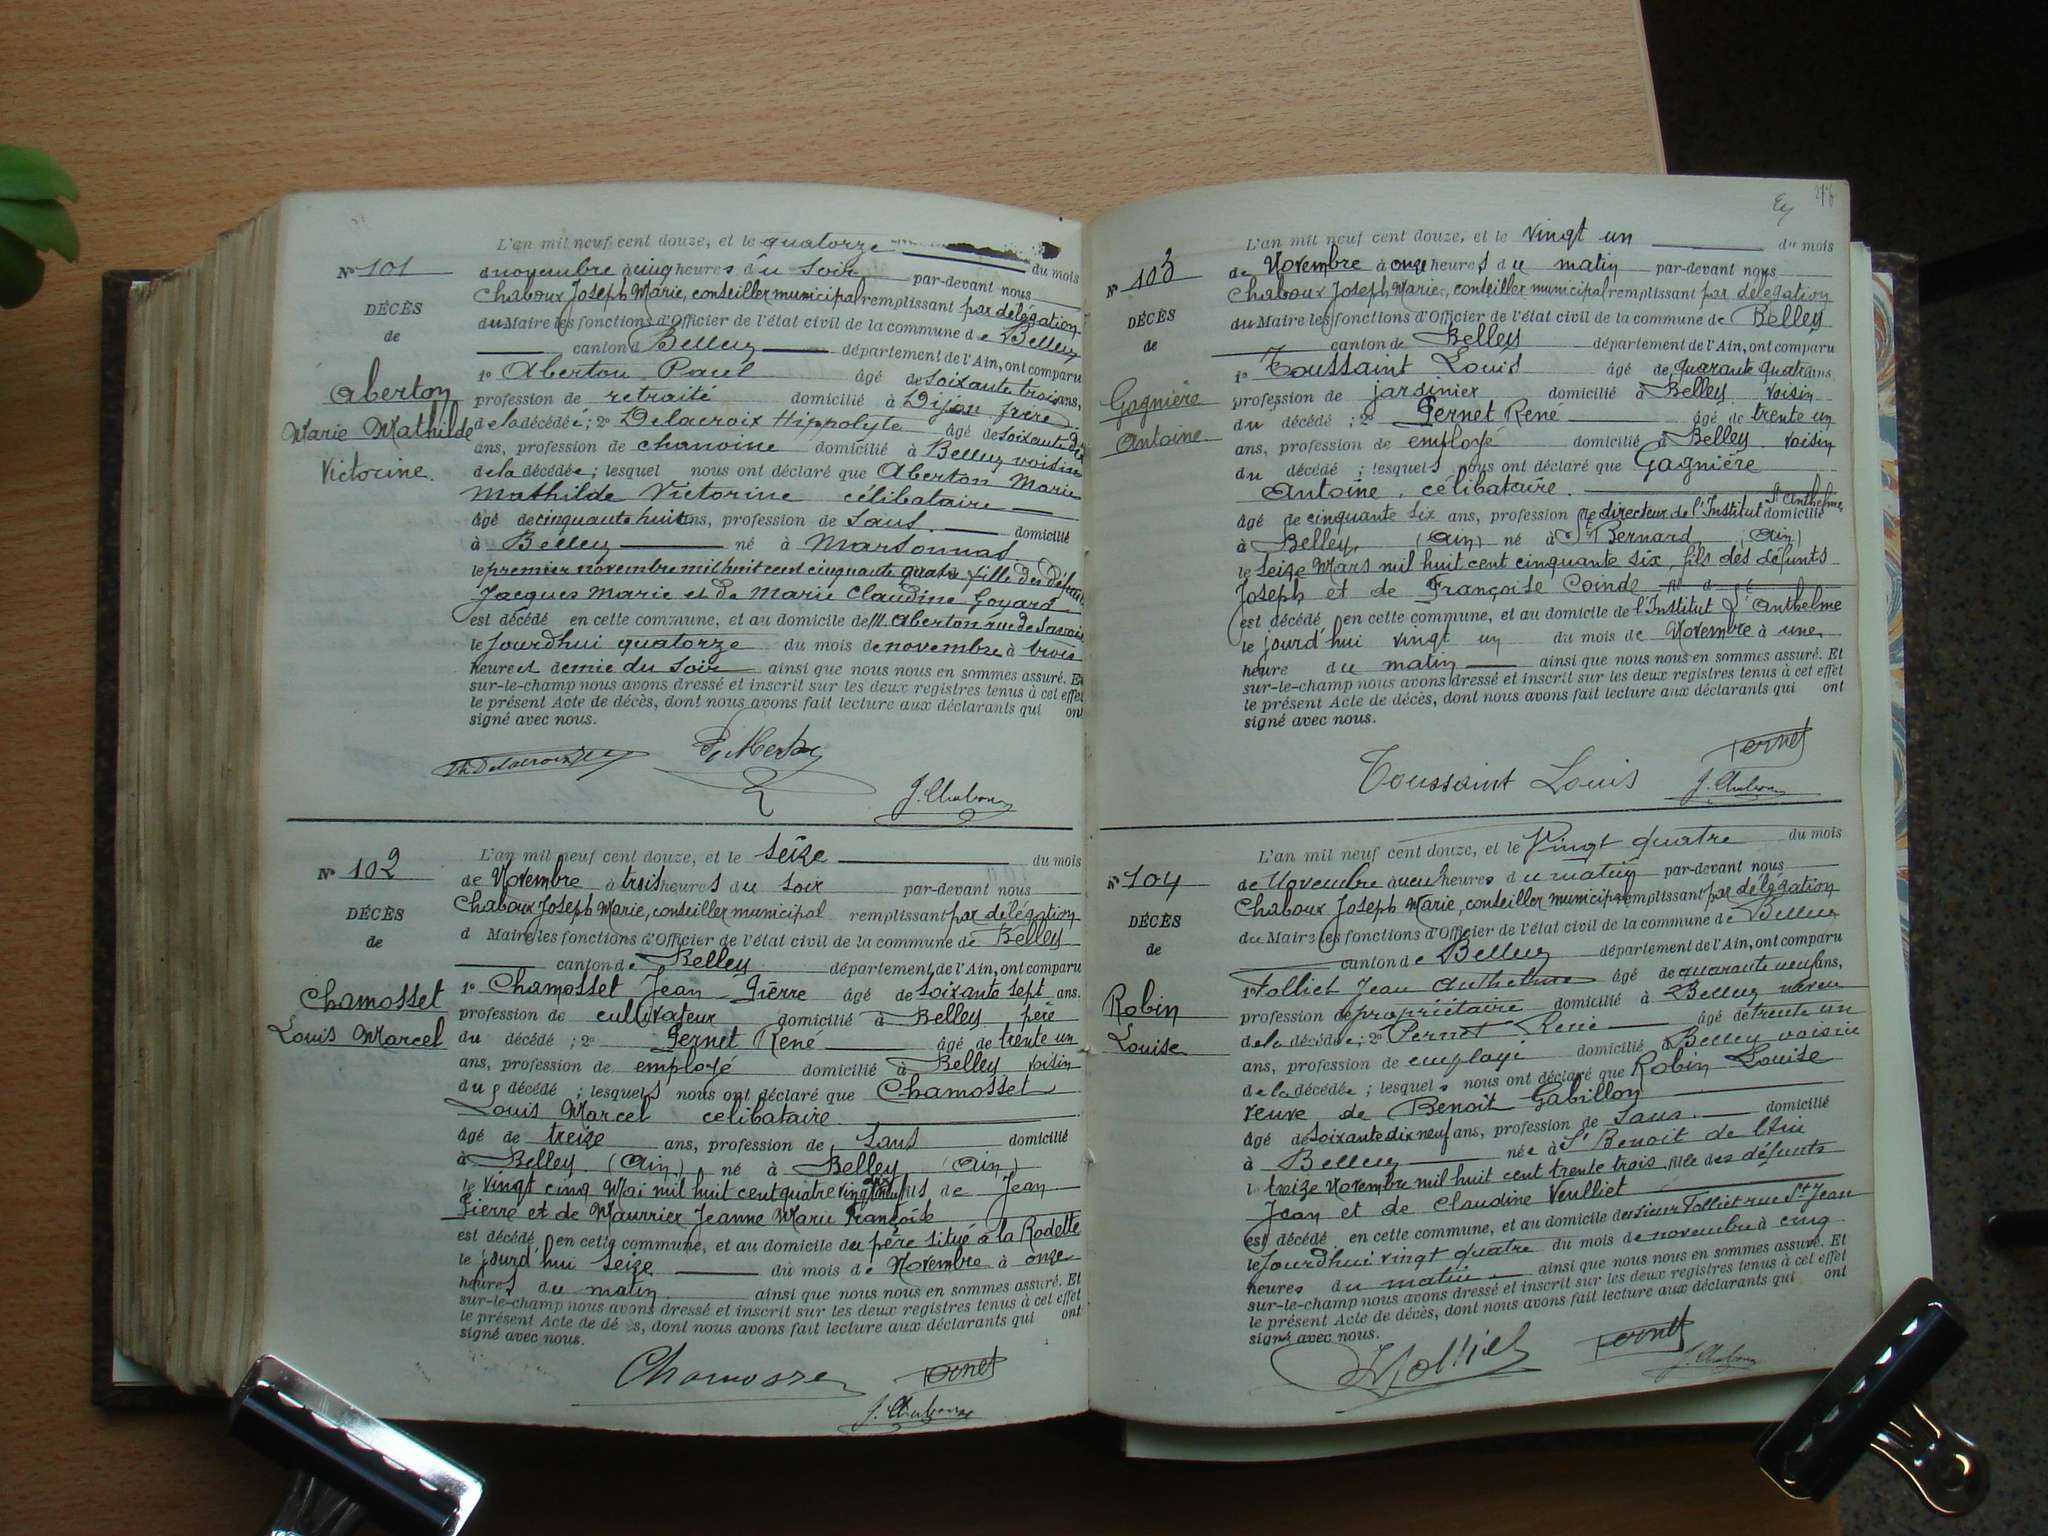 N° 101
DÉCÈS
de
Aberton
Marie Mathilde
Victorine.
L'an mil neuf cent douze, et le quatorze du mois
de novembre à cinq heures du soir par-devant nous
Chaboux Joseph Marie, conseiller municipal remplissant par délégation
du Maire les fonctions d'Officier de l'état civil de la commune de Belley
canton de Belley département de l'Ain, ont comparu
1° Aberton Paul âgé de soixante trois ans,
profession de retraité domicilié à Dijon frère
de la décédée; 2° Delacroix Hippolyte âgé de soixante dix
ans, profession de chanoine domicilié à Belley voisin
de la décédée; lesquel nous ont déclaré que Aberton Marie
Mathilde Victorine célibataire
âgé de cinquante huit ans, profession de sans. domicilié
à Belley né à Marsonnas
le premier novembre mil huit cent cinquante quatre fille des défunts
Jacques Marie et de Marie Claudine Goyard
est décédé en cette commune, et au domicile de M. Aberton rue de Savoie
le jourdhui quatorze du mois de novembre à trois
heures et demie du soir ainsi que nous nous en sommes assuré. Et
sur-le-champ nous avons dressé et inscrit sur les deux registres tenus à cet effet
le présent Acte de décès, dont nous avons fait lecture aux déclarants qui ont
signé avec nous.
J. Chaboux
N° 102
DÉCÈS
de
Chamosset
Louis Marcel
L'an mil neuf cent douze, et le seize du mois
de Novembre à trois heures du soir par-devant nous
Chaboux Joseph Marie, conseiller municipal remplissant par délégation
d Maire les fonctions d'Officier de l'état civil de la commune de Belley
canton de Belley département de l'Ain, ont comparu
1° Chamosset Jean Pierre âgé de soixante sept ans.
profession de cultivateur domicilié à Belley père
du décédé; 2° Pernet René âgé de trente un
ans, profession de employé domicilié à Belley voisin
du décédé; lesquels nous ont déclaré que Chamosset
Louis Marcel celibataire.
âgé de treize ans, profession de sans domicilié
à Belley (Ain) né à Belley (Ain)
le vingt cinq Mai mil huit cent quatre vingt fils de Jean
Pierre et de Maurrier Jeanne Marie Françoise
est décédé en cette commune, et au domicile du père situé à la Rodette
le jourd'hui seize du mois de Novembre à onze
heures du matin. ainsi que nous nous en sommes assuré. Et
sur-le-champ nous avons dressé et inscrit sur les deux registres tenus à cet effet
le présent Acte de décès, dont nous avons fait lecture aux déclarants qui ont
signé avec nous.
Chamosset Pernet
J. Chaboux
N° 103
DÉCÈS
de
Gagnière
Antoine
L'an mil neuf cent douze, et le vingt un du mois
de Novembre à onze heures du matin par-devant nous
Chaboux Joseph Marie, conseiller municipal remplissant par délégation
du Maire les fonctions d'Officier de l'état civil de la commune de Belley
canton de Belley département de l'Ain, ont comparu
1° Toussaint Louis âgé de quarante quatre ans
profession de jardinier domicilié à Belley voisin
du décédé; 2° Pernet René âgé de trente un
ans, profession de employé domicilié à Belley voisin
du décédé; lesquels nous ont déclaré que Gagnière
Antoine, célibataire.
âgé de cinquante six ans, profession de directeur de l'Institut St Anthelme domicilié
à Belley. (Ain) né à St Bernard (Ain)
le seize Mars mil huit cent cinquante six, fils des défunts
Joseph et de Françoise Coinde
est décédé en cette commune, et au domicile de l'Institut St Anthelme
le jourd'hui vingt un du mois de Novembre à une
heure du matin ainsi que nous nous en sommes assuré. Et
sur-le-champ nous avons dressé et inscrit sur les deux registres tenus à cet effet
le présent Acte de décès, dont nous avons fait lecture aux déclarants qui ont
signé avec nous.
Pernet
Toussaint Louis J. Chaboux
N° 104
DÉCÈS
de
Robin
Louise
L'an mil neuf cent douze, et le Vingt quatre du mois
de Novembre à neuf heures du matin par-devant nous
Chaboux Joseph Marie, conseiller municipal remplissant par délégation
du Maire les fonctions d'Officier de l'état civil de la commune de Belley
canton de Belley département de l'Ain, ont comparu
1° Folliet Jean Anthelme âgé de quarante neuf ans,
profession de propriétaire domicilié à Belley neveu
de la décédée; 2° Pernet René âgé de trente un
ans, profession de employé domicilié à Belley voisin
de la décédée; lesquels nous ont déclaré que Robin Louise
veuve de Benoit Gabillon
âgé de soixante dix neuf ans, profession de sans. domicilié
à Belley née à St Benoit de l'Ain
le treize Novembre mil huit cent trente trois fille des défunts
Jean et de Claudine Veulliet
est décédé en cette commune, et au domicile de sieur Folliet rue St Jean
le jourdhui vingt quatre du mois de novembre à cinq
heures du matin ainsi que nous nous en sommes assuré. Et
sur-le-champ nous avons dressé et inscrit sur les deux registres tenus à cet effet
le présent Acte de décès, dont nous avons fait lecture aux déclarants qui ont
signé avec nous.
Folliet Pernet
J. Chaboux